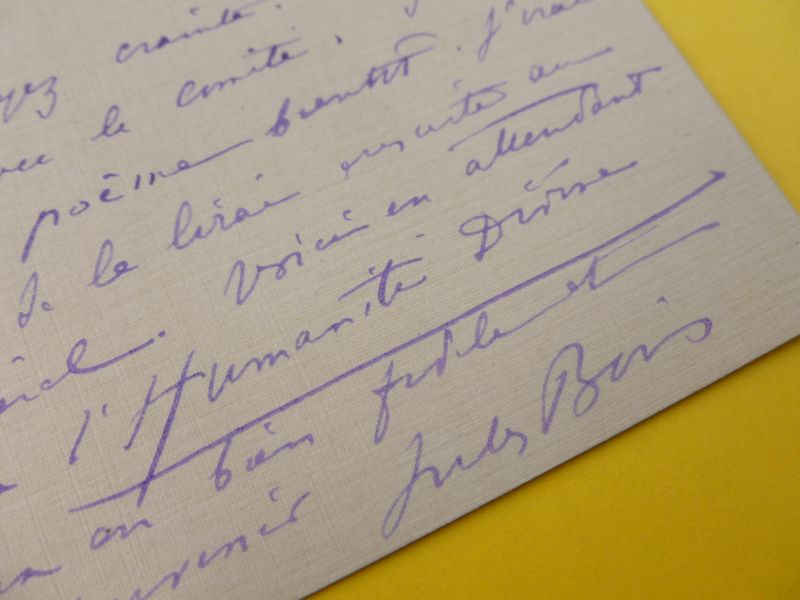 crainte.
le comité.
poème bientôt. J'irai
de le lirai ensuite au
Voici en attendant
l'Humanité Divine
bien fidèle et
Jules Bois